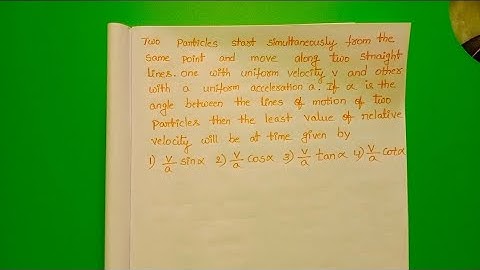 Two Particles start simultaneously from the
same point and move along two straight
lines. one with uniform velocity v and other
with a uniform acceleration a. If α is the
angle between the lines of motion of two
Particles then the least value of relative
velocity will be at time given by
1) v/a sinα 2) v/a cosα 3) v/a tanα 4) v/a cotα